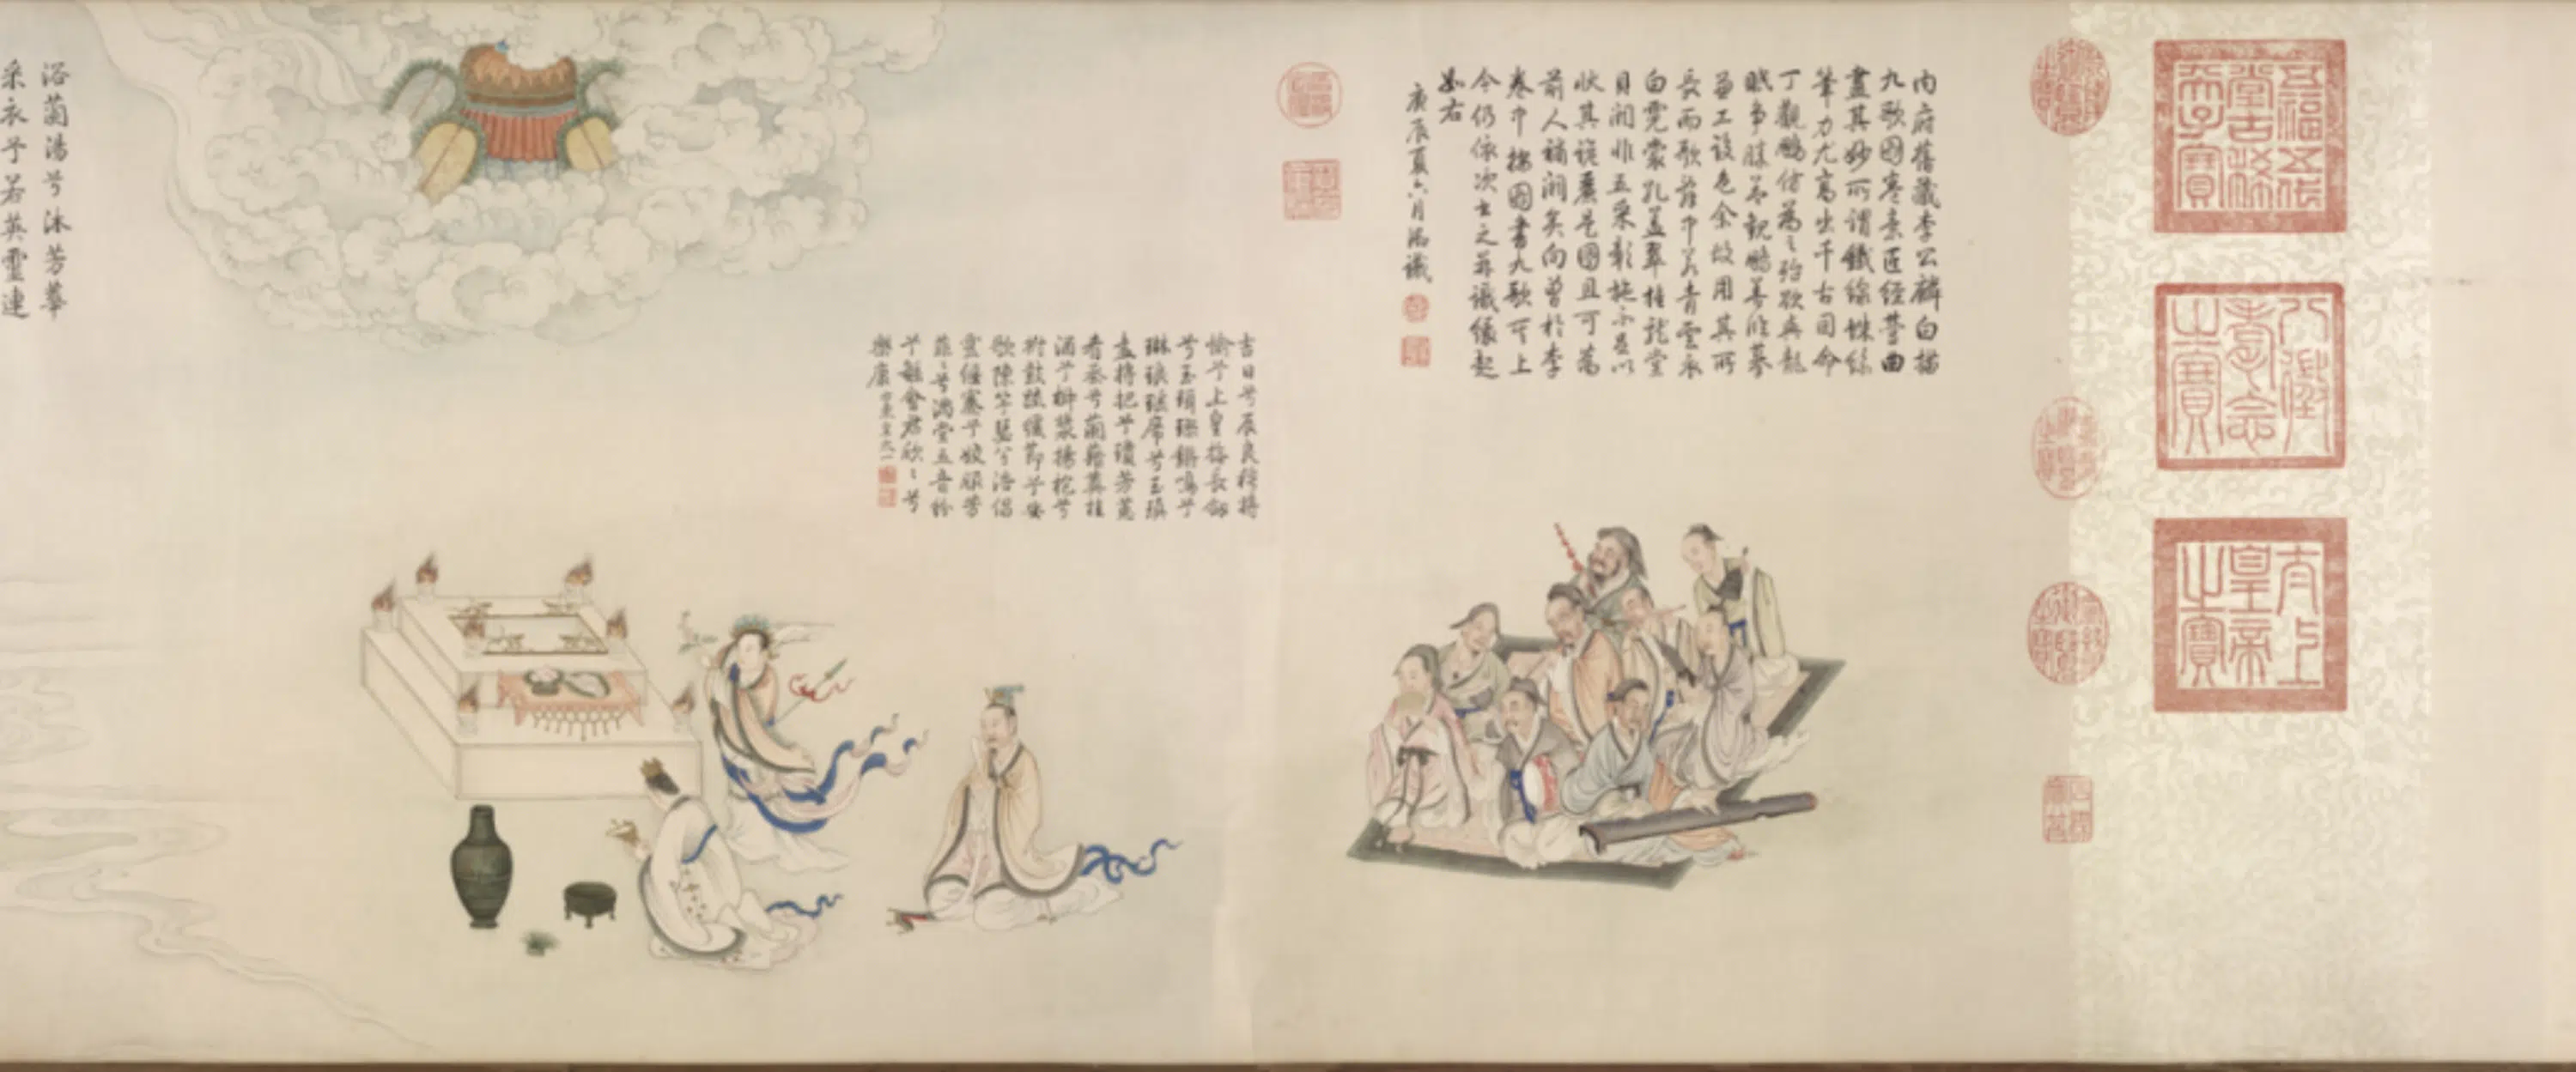 五福五代
堂古稀
天子寶
八徵
耄念
之寶
太上
皇帝
之寶
內府舊藏李公麟白描
九歌圖卷意匠經營曲
盡其妙所謂鐵線蛛絲
筆力尤高出千古因命
丁觀鵬仿為之殆欲與龍
眠爭勝觀鵬善臨摹
並工設色余故用其所
長而歌辭中若青雲衣
白霓裳孔蓋翠旍龍堂
貝闕非五采彰施不足以
狀其詭麗是圖且可為
前人補闕矣向曾於李
卷中按圖書九歌上
今仍依次書之並識緣起
如右
庚辰夏六月御識
吉日兮辰良穆將
愉兮上皇撫長劍
兮玉珥璆鏘鳴兮
琳琅瑤席兮玉瑱
盍將把兮瓊芳蕙
肴蒸兮蘭藉奠桂
酒兮椒漿揚枹兮
拊鼓疏緩節兮安
歌陳竽瑟兮浩倡
靈偃蹇兮姣服芳
菲〻兮滿堂五音紛
兮繁會君欣〻兮
樂康 右東皇太一
浴蘭湯兮沐芳華
采衣兮若英靈連